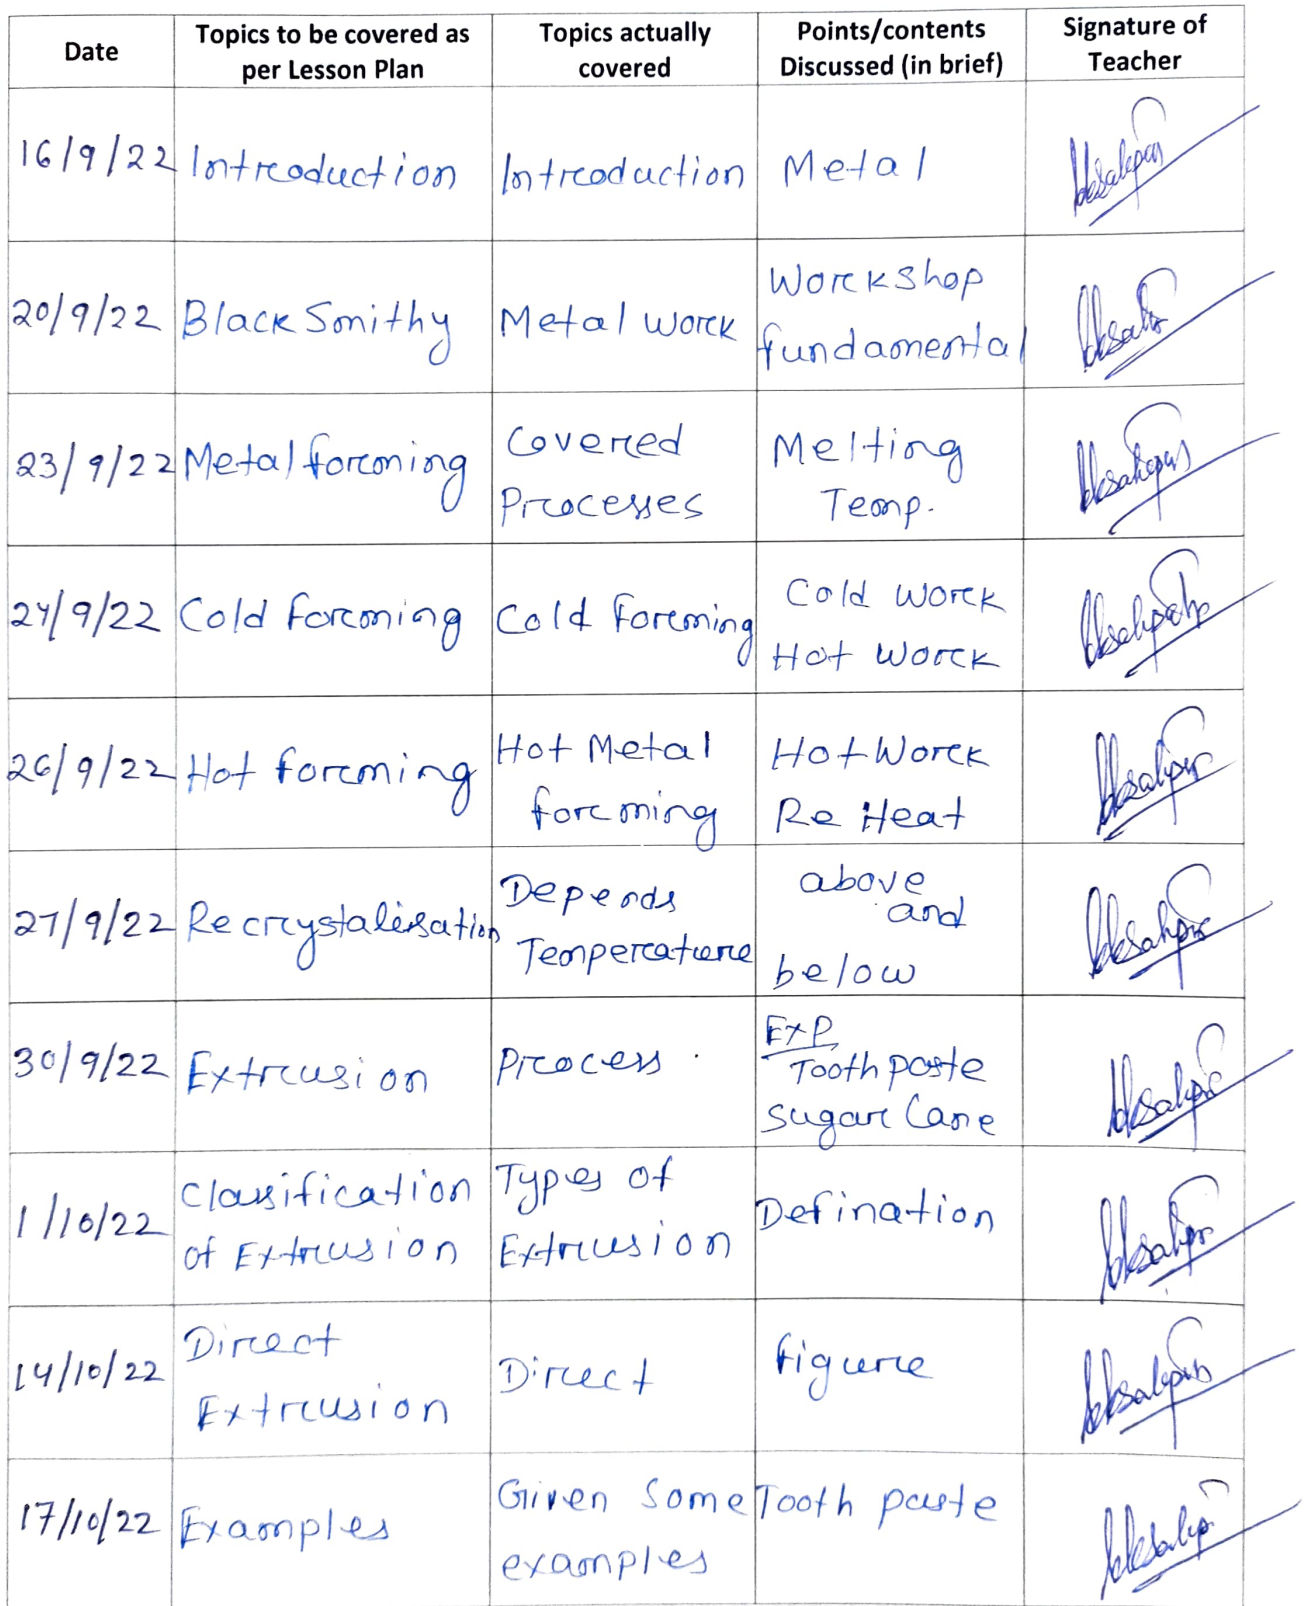 Date
Topics to be covered as
per Lesson Plan
Topics actually
covered
Points/contents
Discussed (in brief)
Signature of
Teacher
16/9/22
Introduction
Introduction
Metal
20/9/22
Black Smithy
Metal work
Workshop
fundamental
23/9/22
Metal forming
Covered
Processes
Melting
Temp.
24/9/22
Cold forming
Cold Forming
Cold work
Hot work
26/9/22
Hot forming
Hot Metal
forming
Hot Work
Re Heat
27/9/22
Recrystalisation
Depends
Temperature
above
and
below
30/9/22
Extrusion
Process.
Exp
Tooth paste
Sugar Cane
1/10/22
Classification
of Extrusion
Types of
Extrusion
Defination
14/10/22
Direct
Extrusion
Direct
figure
17/10/22
Examples
Given Some
examples
Tooth paste